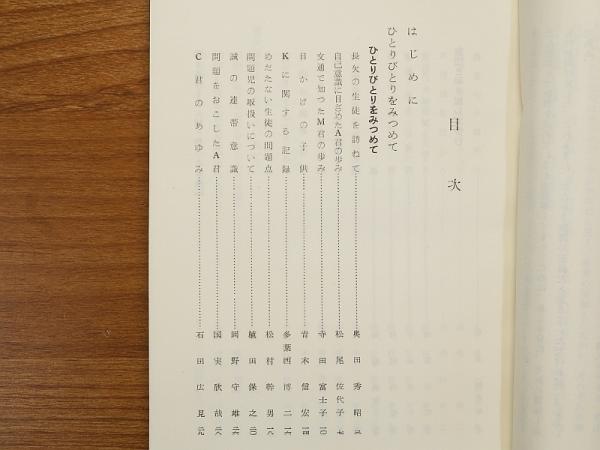 目次
はじめに
ひとりびとりをみつめて
ひとりびとりをみつめて
長欠の生徒を訪ねて 奥田秀昭
自己意識に目ざめたA君の歩み 松尾佐代子 七
文通で知つたM君の歩み 寺田富士子
日かげの子供 青木信宏
Kに関する記録 多葉西博二
めだたない生徒の問題点 松村幹男
問題児の取扱いについて 植田保之
誠の連帯意識 岡野守雄
問題をおこしたA君 国実欣哉
C君のあゆみ 石田広見